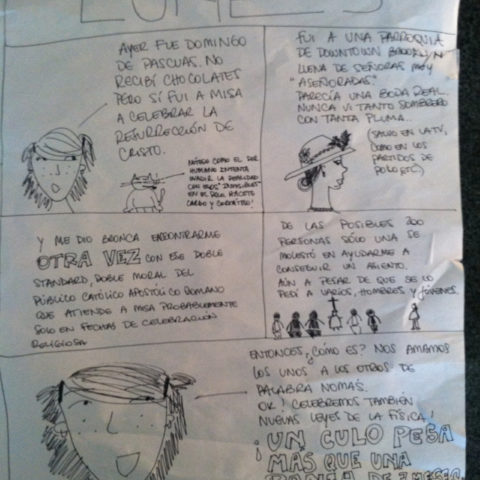 LUNES
AYER FUE DOMINGO
DE PASCUAS. NO
RECIBÍ CHOCOLATES
PERO SÍ FUI A MISA
A CELEBRAR LA
RESURRECCIÓN DE
CRISTO.
COMO EL SER
HUMANO INTENTA
EVADIR LA REALIDAD
CON ESOS "INVISIBLES"
EN EL PELO. HACETE
CARGO Y
FUI A UNA PARROQUIA
DE DOWNTOWN BROOKLYN
LLENA DE SEÑORAS MUY
"ASEÑORADAS".
PARECÍA UNA BODA REAL.
NUNCA VI TANTO SOMBRERO
CON TANTA PLUMA.
(SALVO EN LA TV,
COMO EN LOS
PARTIDOS DE
POLO ETC)
Y ME DIO BRONCA ENCONTRARME
OTRA VEZ CON ESE DOBLE
STANDARD, DOBLE MORAL DEL
PÚBLICO CATÓLICO APOSTÓLICO ROMANO
QUE ATIENDE A MISA PROBABLEMENTE
SOLO EN FECHAS DE CELEBRACIÓN
RELIGIOSA
DE LAS POSIBLES 200
PERSONAS SÓLO UNA SE
MOLESTÓ EN AYUDARME A
CONSEGUIR UN ASIENTO.
AÚN A PESAR DE QUE SE LO
PEDÍ A VARIOS, HOMBRES Y JÓVENES.
ENTONCES, ¿CÓMO ES? NOS AMAMOS
LOS UNOS A LOS OTROS DE
PALABRA NOMÁS.
OK! CELEBREMOS TAMBIÉN
NUEVAS LEYES DE LA FÍSICA!
¡UN CULO PESA
MÁS QUE UNA
PANZA DE 7 MESES